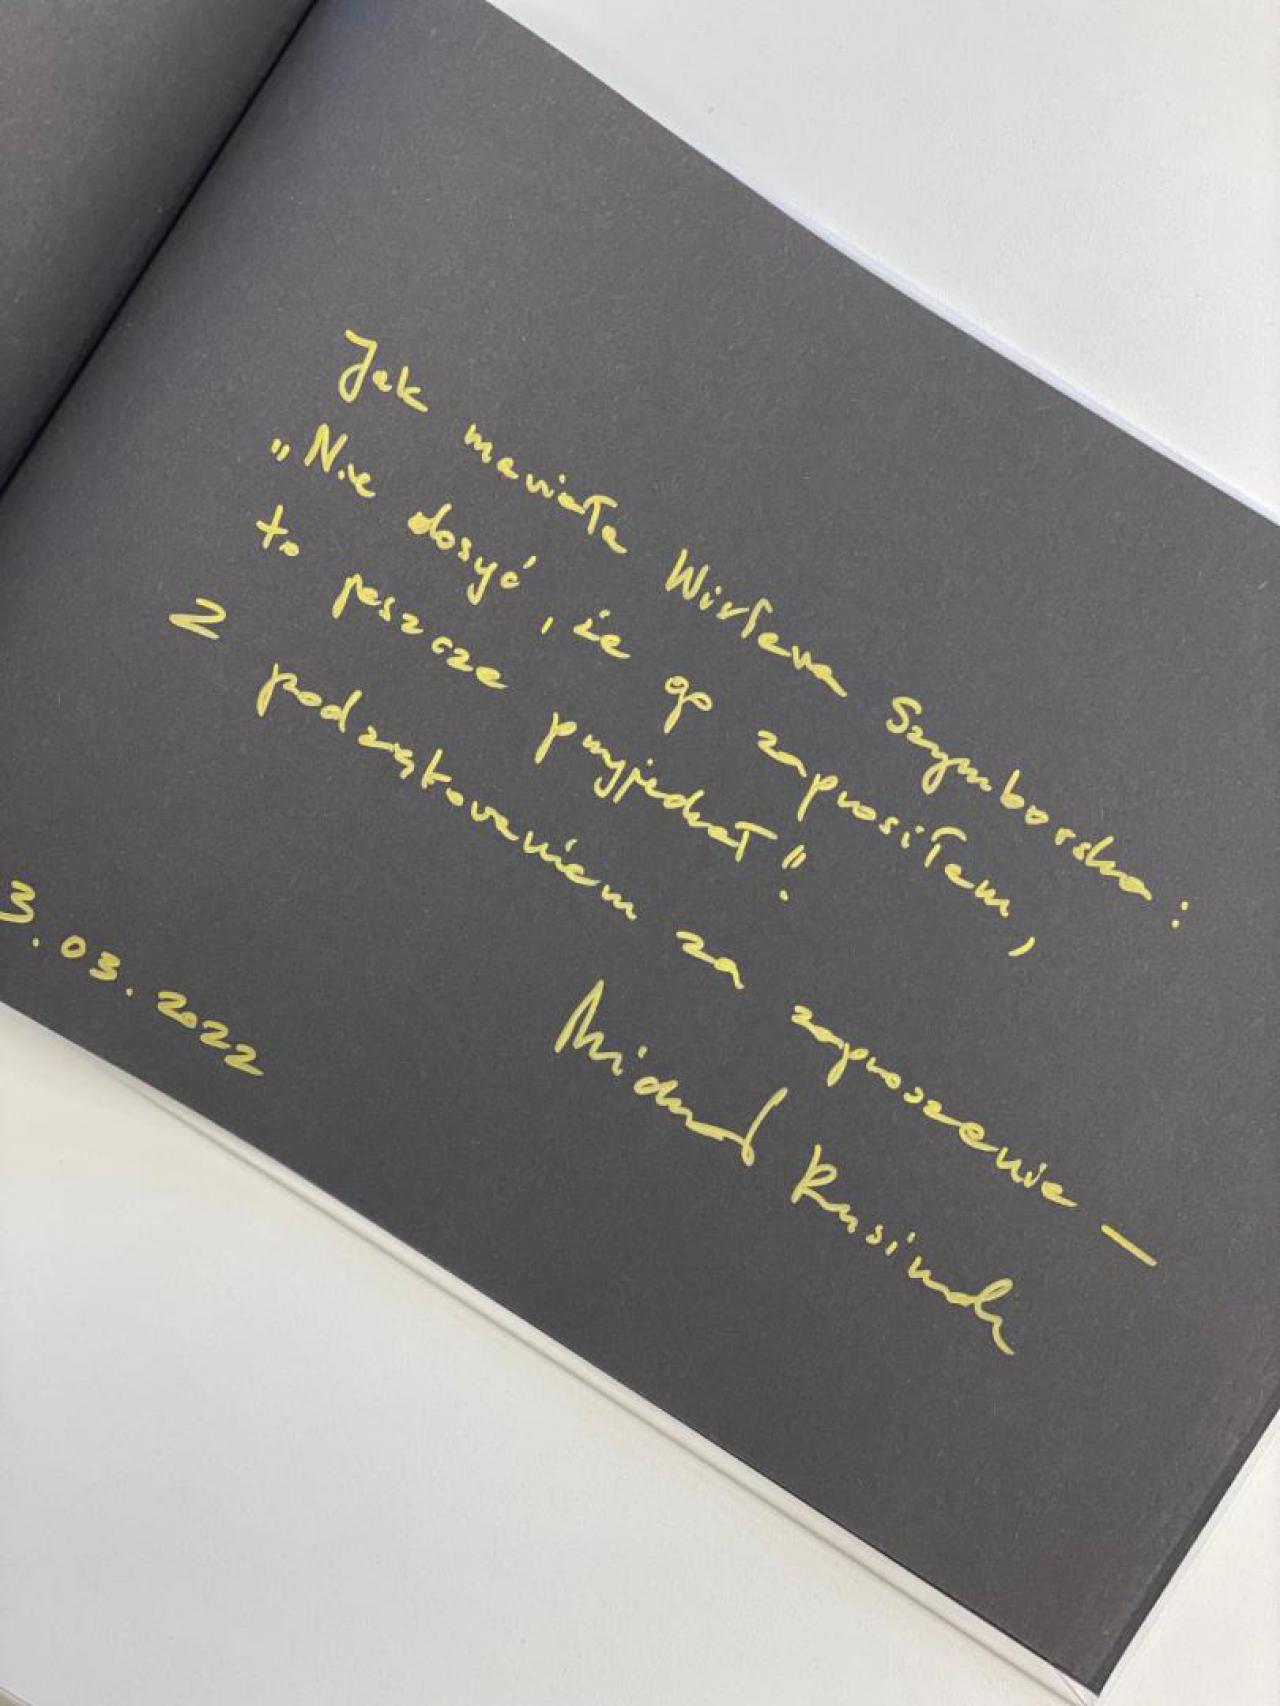 Jak mawiała Wisława Szymborska:
„Nie dosyć, że go zaprosiłam,
to jeszcze przyjechał"!
Z podziękowaniem za zaproszenie –
Michał Rusinek
3.03.2022